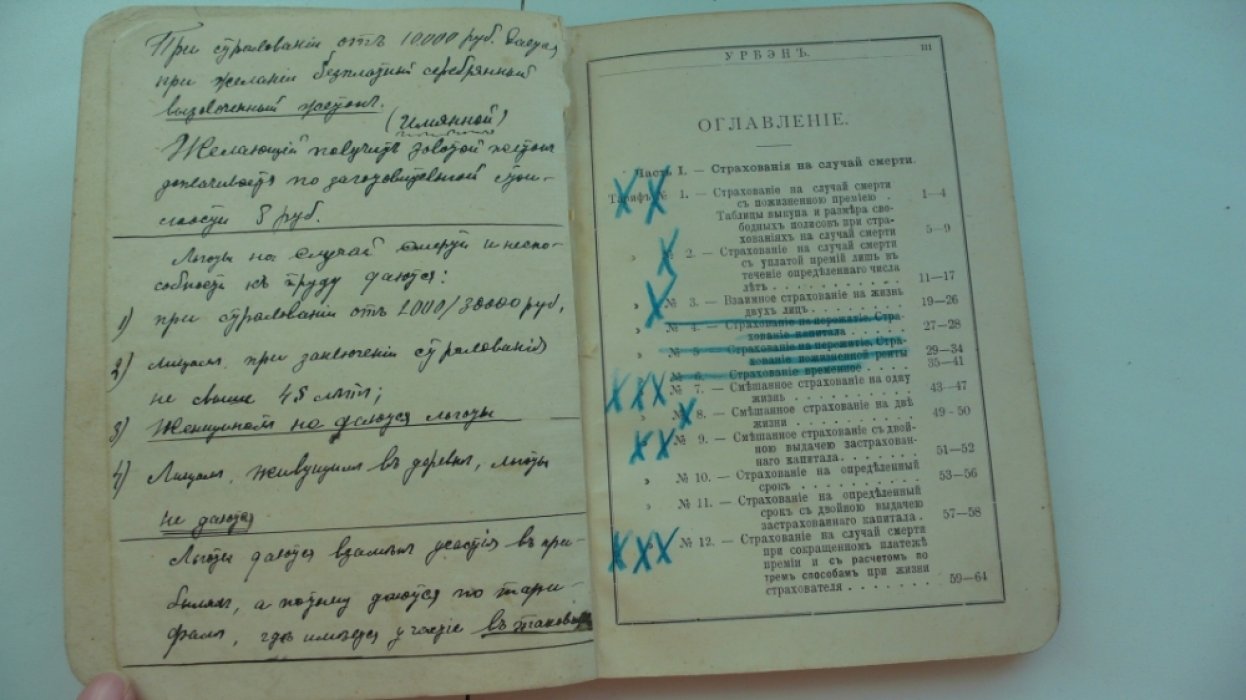 При страхованіи отъ 10000 руб. дается
при желаніи безплатный серебрянный
вызолоченный жетонъ.
(Имянной)
Желающій получить золотой жетонъ
доплачиваетъ по заготовительной стои-
мости 8 руб.
Льготы на случай смерти и неспо-
собности къ труду даются:
1) при страхованіи отъ 1000/30000 руб,
2) лицамъ, при заключеніи страхованія
не свыше 45 лѣтъ;
3) Женщинамъ не даются льготы
4) Лицамъ, живущимъ въ деревнѣ, льготы
не даются
Льготы даются взамѣнъ участія въ при-
быляхъ, а потому даются по тари-
фамъ, гдѣ имѣется участіе въ таковыхъ
УРБЭНЪ.
III
ОГЛАВЛЕНІЕ.
Часть I. — Страхованія на случай смерти.
Тарифъ № 1. — Страхованіе на случай смерти
съ пожизненною преміею . 1—4
Таблицы выкупа и размѣра сво-
бодныхъ полисовъ при стра-
хованіяхъ на случай смерти 5—9
» № 2. — Страхованіе на случай смерти
съ уплатой премій лишь въ
теченіе опредѣленнаго числа
лѣтъ . . . . . . . . . . . 11—17
» № 3. — Взаимное страхованіе на жизнь
двухъ лицъ. . . . . . . . 19—26
» № 4. — Страхованіе на дожитіе. Стра-
хованіе капитала . . . . . 27—28
» № 5 — Страхованіе на дожитіе. Стра-
хованіе пожизненной ренты 29—34
» № 6. — Страхованіе временное . . . . 35—41
» № 7. — Смѣшанное страхованіе на одну
жизнь . . . . . . . . . . 43—47
» № 8. — Смѣшанное страхованіе на двѣ
жизни . . . . . . . . . . 49 - 50
» № 9. — Смѣшанное страхованіе съ двой-
ною выдачею застрахован-
наго капитала. . . . . . . 51—52
» № 10. — Страхованіе на опредѣленный
срокъ . . . . . . . . . . 53—56
» № 11. — Страхованіе на опредѣленный
срокъ съ двойною выдачею
застрахованнаго капитала . 57—58
» № 12. — Страхованіе на случай смерти
при сокращенномъ платежѣ
преміи и съ расчетомъ по
тремъ способамъ при жизни
страхователя . . . . . . . 59—64